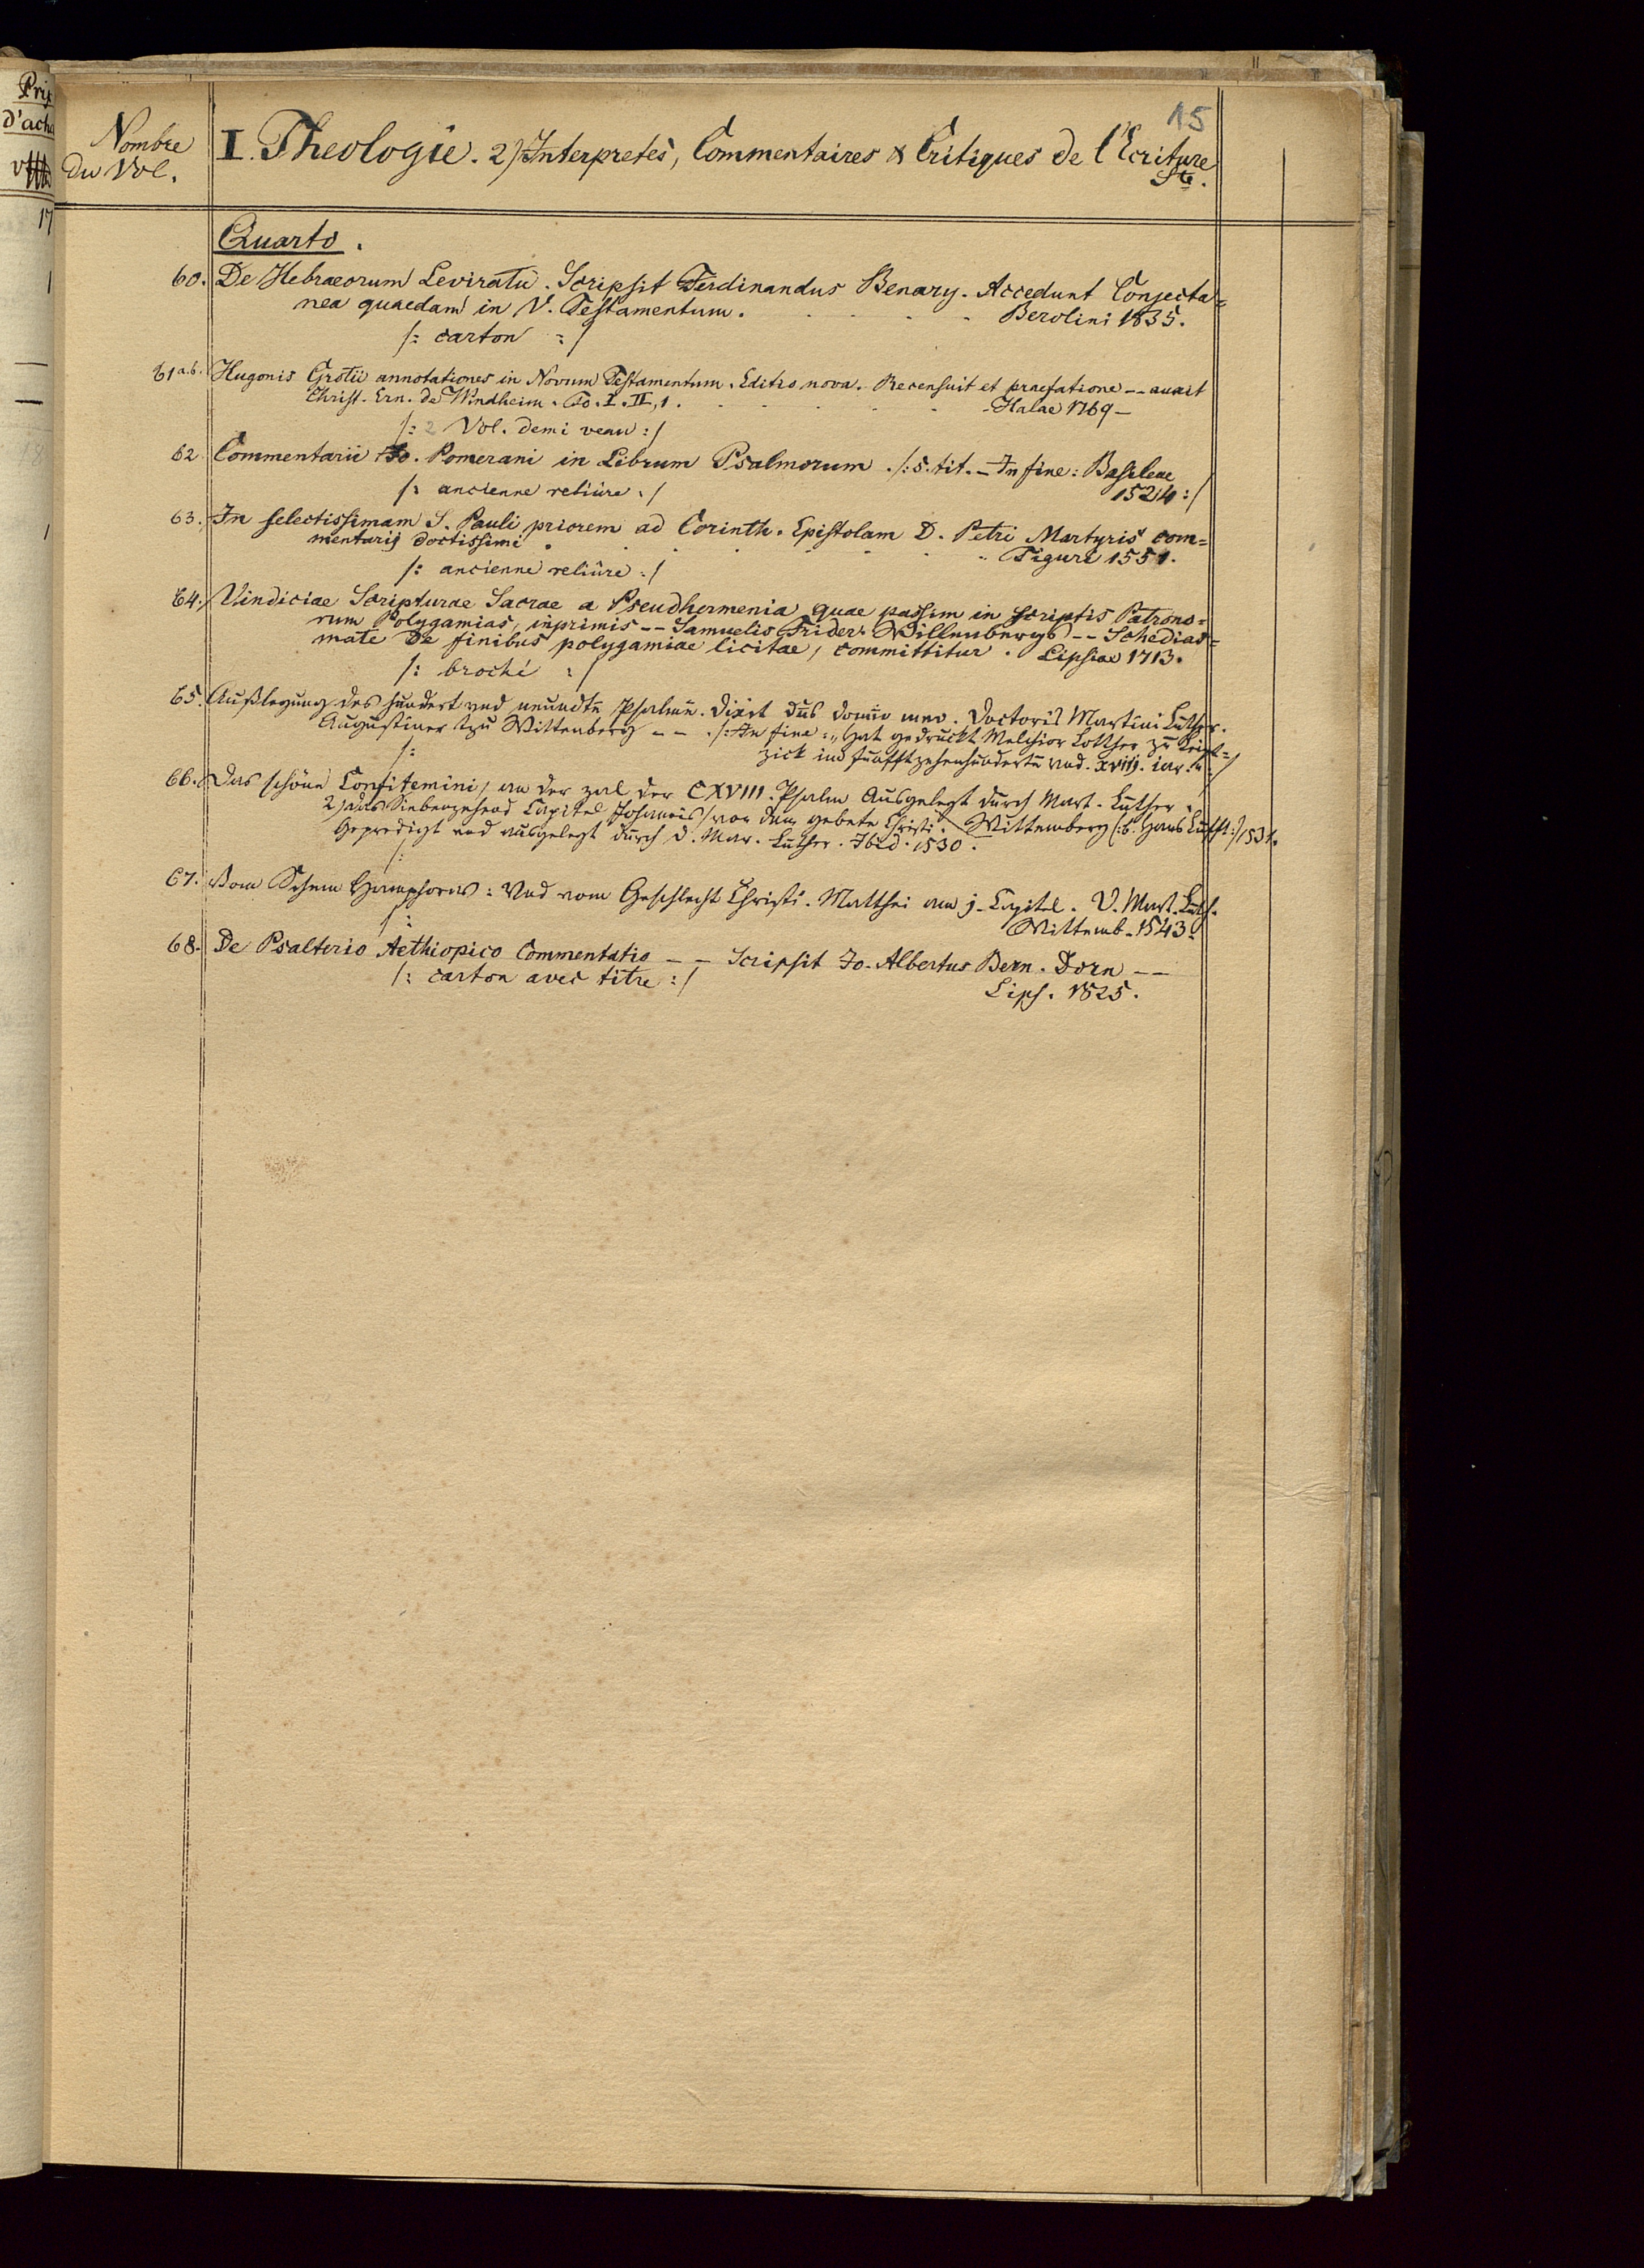 Prix
d'acha
17
1
—
—
18
1
15
Nombre
du Vol.
I. Theologie. 2) Interpretes, Commentaires & Critiques de l'Ecriture
Ste.
Quarto.
60. De Hebraeorum Leviratu. Scripsit Ferdinandus Benary. Accedunt Conjecta=
nea quaedam in V. Testamentum. Berolini 1835.
/: carton :/
61 a.b. Hugonis Grotii annotationes in Novum Testamentum. Editio nova. Recensuit et praefatione -- auxit
Christ. Ern. de Windheim. To. I. II, 1. Halae 1769 —
/: 2 Vol. demi veau :/
62 Commentarii Jo. Pomerani in Librum Psalmorum. /: s. tit. — In fine: Basileae
/: ancienne reliûre :/ 1524 :/
63. In selectissimam S. Pauli priorem ad Corinth. Epistolam D. Petri Martyris com=
mentarij doctissimi. Tiguri 1551.
/: ancienne reliûre :/
64. Vindiciae Scripturae Sacrae a Pseudhermenia quae passim in scriptis Patrono=
rum Polygamias, inprimis -- Samuelis Frider. Willenbergs -- Schedias=
mate De finibus polygamiae licitae, committitur. Lipsiae 1713.
/: broché :/
65. Außlegung des hundert und neundtn Psalmn. Dixit dns domio meo. Doctoris Martini Luther.
Augustiner tzu Wittenberg -- . /: In fine: „Hat gedruckt Melchior Lotther zu Leipt=
/: zick im funfftzehenhundertn und. xviij. iar." :/
66. Das schöne Confitemini, an der zal der CXVIII. Psalm Ausgelegt durch Mart. Luther.
2) Das Siebenzehend Capitel Johannis / von dem gebete Christi. Wittemberg (: b. Hans Lufft :) 1531.
Gepredigt und ausgelegt durch D. Mar. Luther. Ibid. 1530.
/:
67. Vom Schem Hamphoras: Und vom Geschlecht Christi. Matthei am j. Capitel. D. Mart. Luth.
/: Wittemb. 1543.
68. De Psalterio Aethiopico Commentatio -- Scripsit Jo. Albertus Bern. Dorn --
/: carton avec titre :/ Lips. 1825.